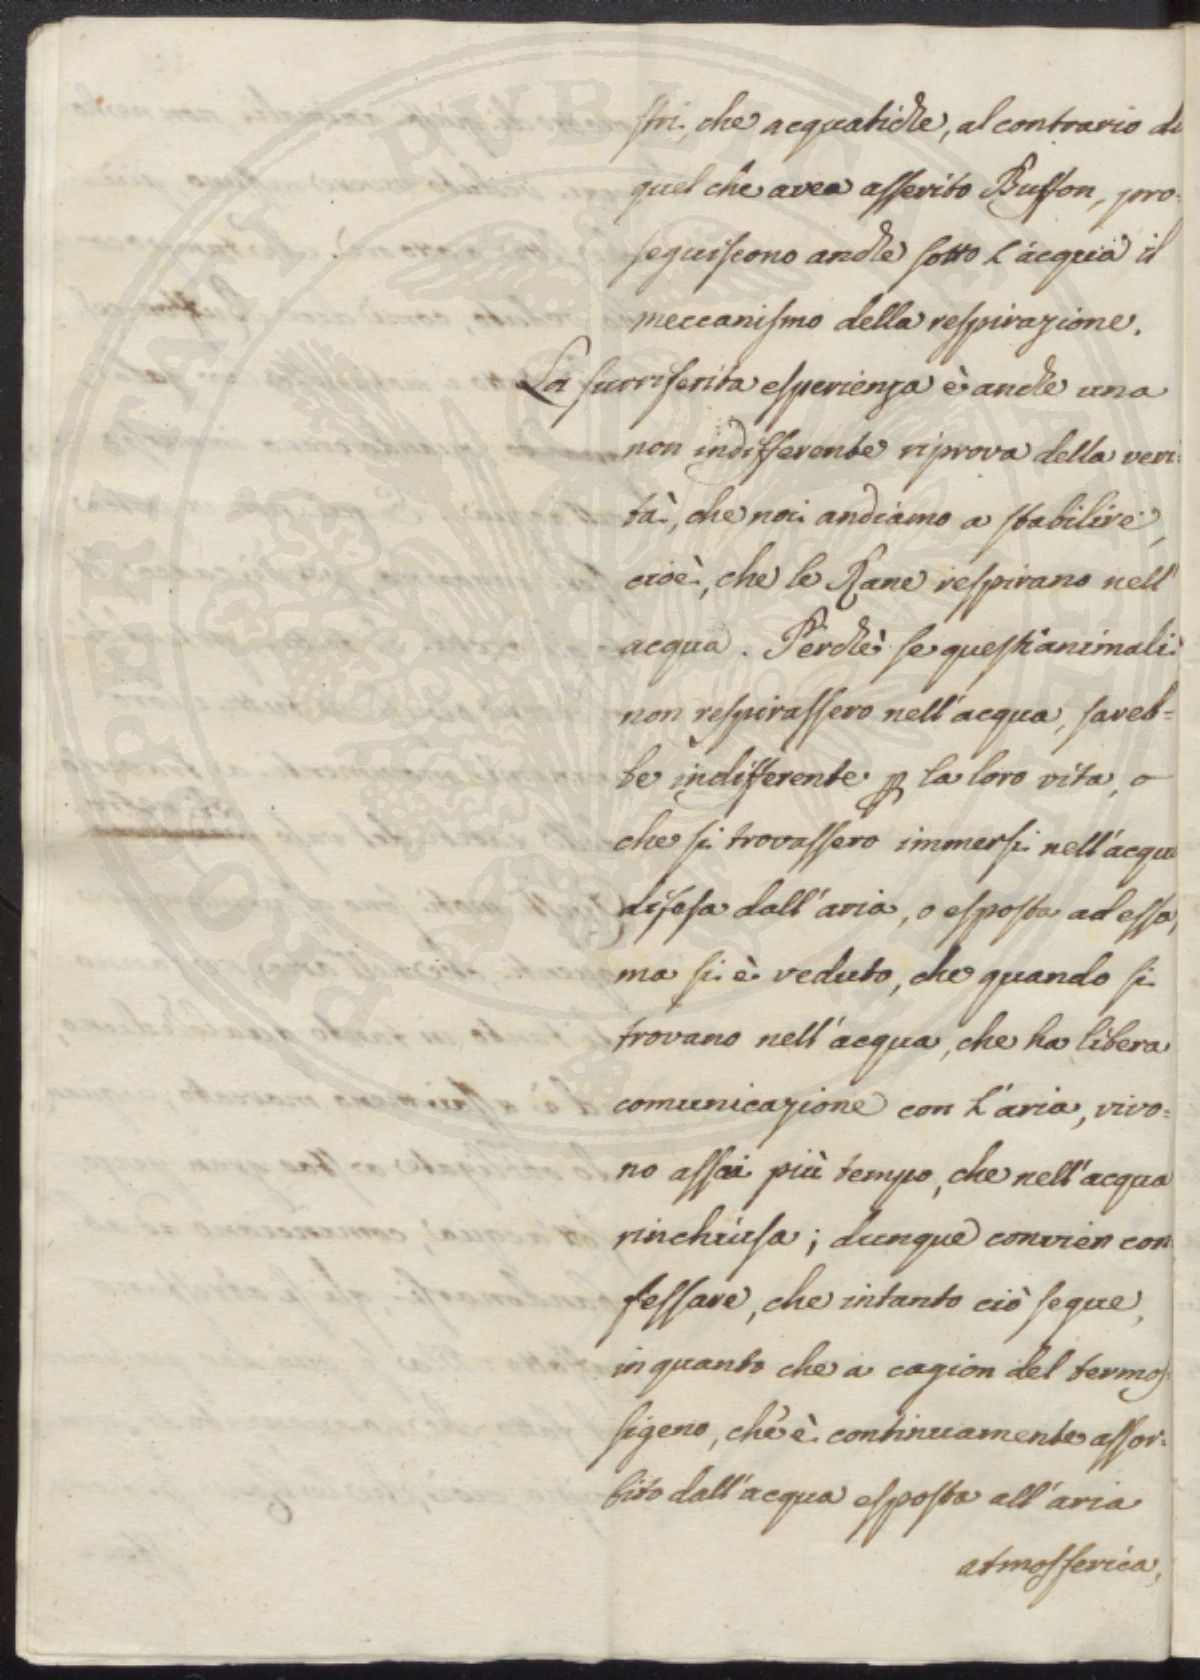 stri, che acquatiche, al contrario di
quel che avea asserito Buffon, pro-
seguiscono anche sotto l'acqua il
meccanismo della respirazione.
La surriferita esperienza è anche una
non indifferente riprova della veri-
tà, che noi andiamo a stabilire,
cioè, che le Rane respirano nell'
acqua. Perchè se questi animali
non respirassero nell'acqua, sareb=
be indifferente p la loro vita, o
che si trovassero immersi nell'acqua
difesa dall'aria, o esposta ad essa,
ma si è veduto, che quando si
trovano nell'acqua, che ha libera
comunicazione con l'aria, vivo=
no assai più tempo, che nell'acqua
rinchiusa; dunque convien con
fessare, che intanto ciò segue,
in quanto che a cagion del termos-
sigeno, ch'è continuamente assor-
bito dall'acqua esposta all'aria
atmosferica,